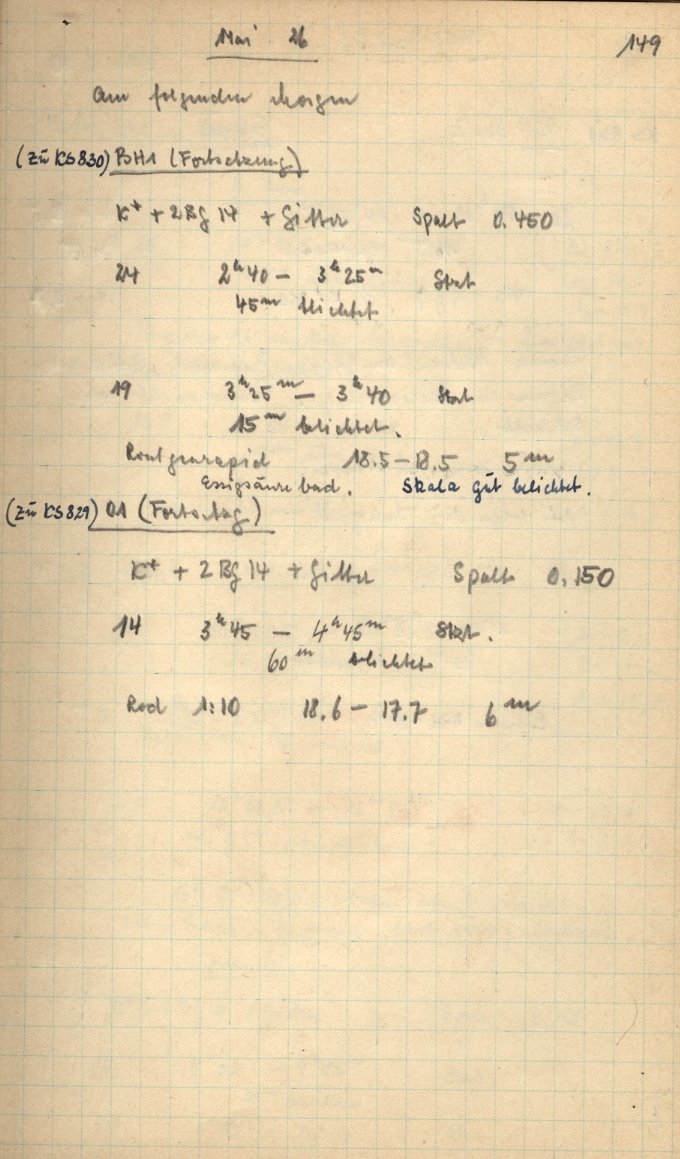 Mai 26 149
Am folgenden Morgen
(zu KS830) BH1 (Fortsetzung)
K* + 2 BG 17 + Gitter Spalt 0.450
24 2h40 – 3h25m Skat
45m blichtet
19 3h25m – 3h40 Skat
15m belichtet.
Rontgenrapid 18.5 – 18.5 5m
Essigsäurebad. Skala gut belichtet.
(zu KS829) 01 (Fortsetzg)
K* + 2 BG 17 + Gitter Spalt 0.150
14 3h45 – 4h45m Skat.
60m belichtet
Rod 1:10 18.6 – 17.7 6m